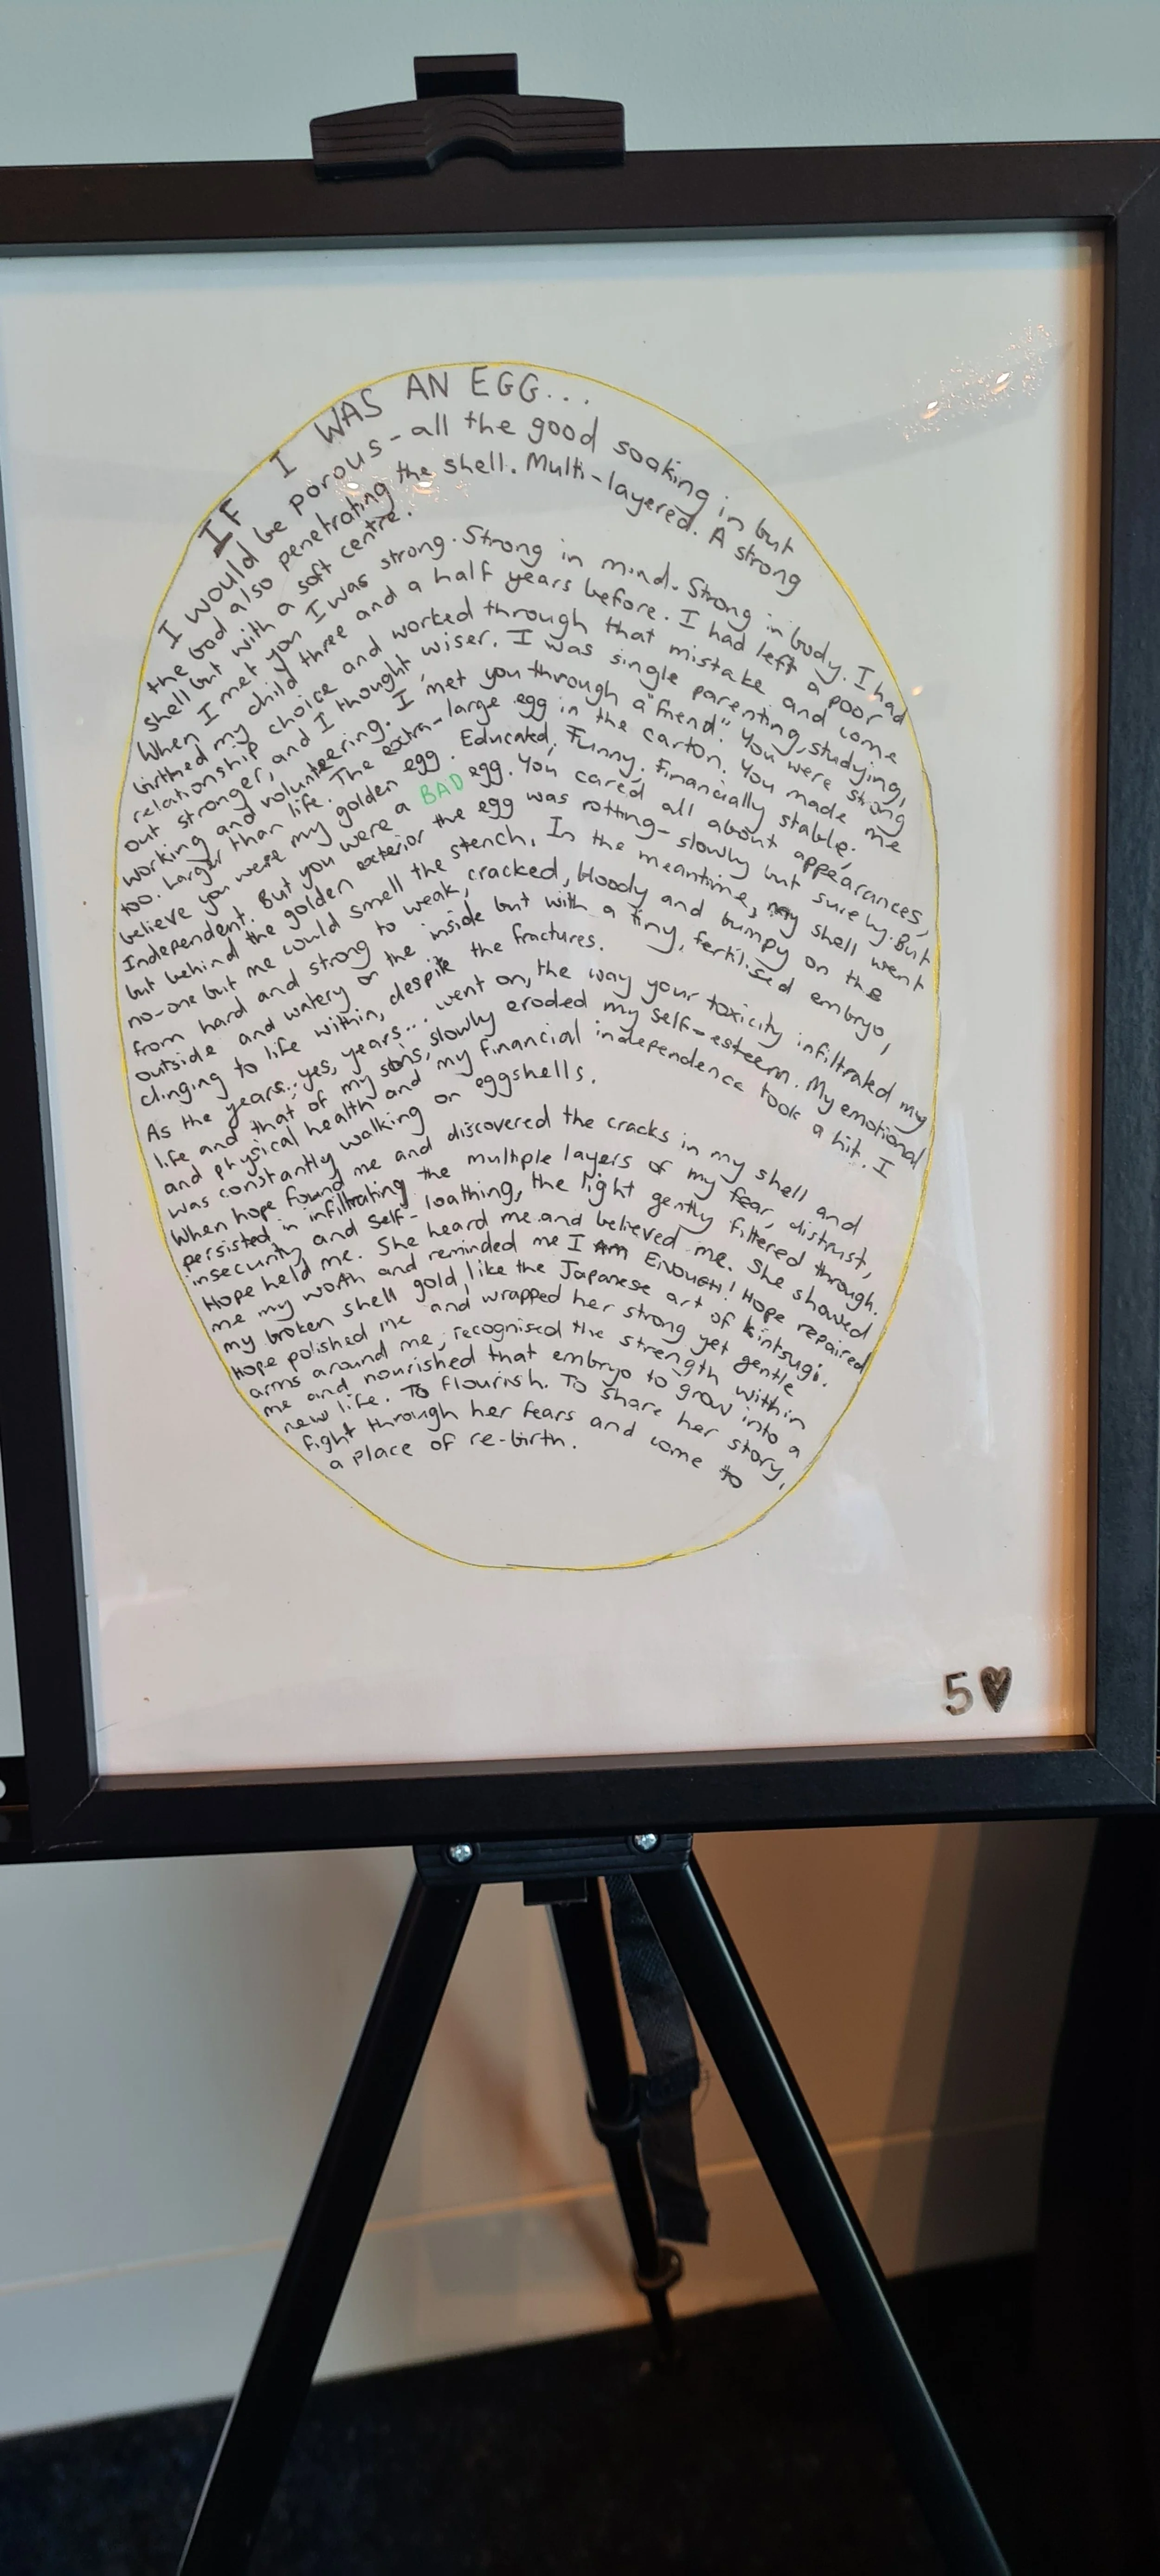 IF I WAS AN EGG...
I would be porous - all the good soaking in but
the bad also penetrating the shell. Multi-layered. A strong
shell but with a soft centre.
When I met you I was strong. Strong in mind. Strong in body. I had
birthed my child three and a half years before. I had left a poor
relationship choice and worked through that mistake and come
out stronger, and I thought wiser. I was single parenting, studying,
working and volunteering. I met you through a "friend". You were strong
too. Larger than life. The extra-large egg in the carton. You made me
believe you were my golden egg. Educated. Funny. Financially stable.
Independent. But you were a BAD egg. You cared all about appearances,
but behind the golden exterior the egg was rotting - slowly but surely. But
no-one but me could smell the stench. In the meantime, my shell went
from hard and strong to weak, cracked, bloody and bumpy on the
outside and watery on the inside but with a tiny, fertilised embryo,
clinging to life within, despite the fractures.
As the years.. yes, years... went on, the way your toxicity infiltrated my
life and that of my sons, slowly eroded my self-esteem. My emotional
and physical health and my financial independence took a hit. I
was constantly walking on eggshells.
When hope found me and discovered the cracks in my shell and
persisted in infiltrating the multiple layers of my fear, distrust,
insecurity and self-loathing, the light gently filtered through.
Hope held me. She heard me and believed me. She showed
me my worth and reminded me I AM ENOUGH! Hope repaired
my broken shell gold, like the Japanese art of kintsugi.
Hope polished me and wrapped her strong yet gentle
arms around me, recognised the strength within
me and nourished that embryo to grow into a
new life. To flourish. To share her story,
fight through her fears and come to
a place of re-birth.
5♥